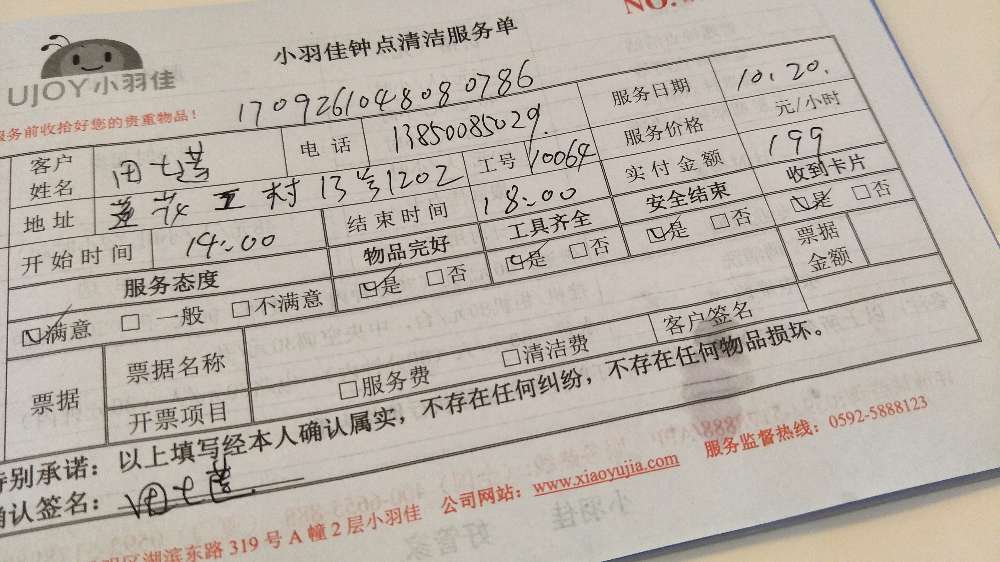 NO.
小羽佳钟点清洁服务单
UJOY小羽佳
服务前收拾好您的贵重物品！
1709261048080786
客户姓名 田七莲 电话 13850085029 服务日期 10.20.
地址 莲花五村13号1202 工号 10064 服务价格 元/小时
开始时间 14:00 结束时间 18:00 实付金额 199
服务态度 物品完好 工具齐全 安全结束 收到卡片
☑满意 □一般 □不满意 ☑是 □否 ☑是 □否 ☑是 □否 ☑是 □否
票据 票据名称 客户签名 票据金额
开票项目 □服务费 □清洁费
特别承诺：以上填写经本人确认属实，不存在任何纠纷，不存在任何物品损坏。
确认签名：田七莲
区湖滨东路319号A幢2层小羽佳 公司网站：www.xiaoyujia.com 服务监督热线：0592-5888123